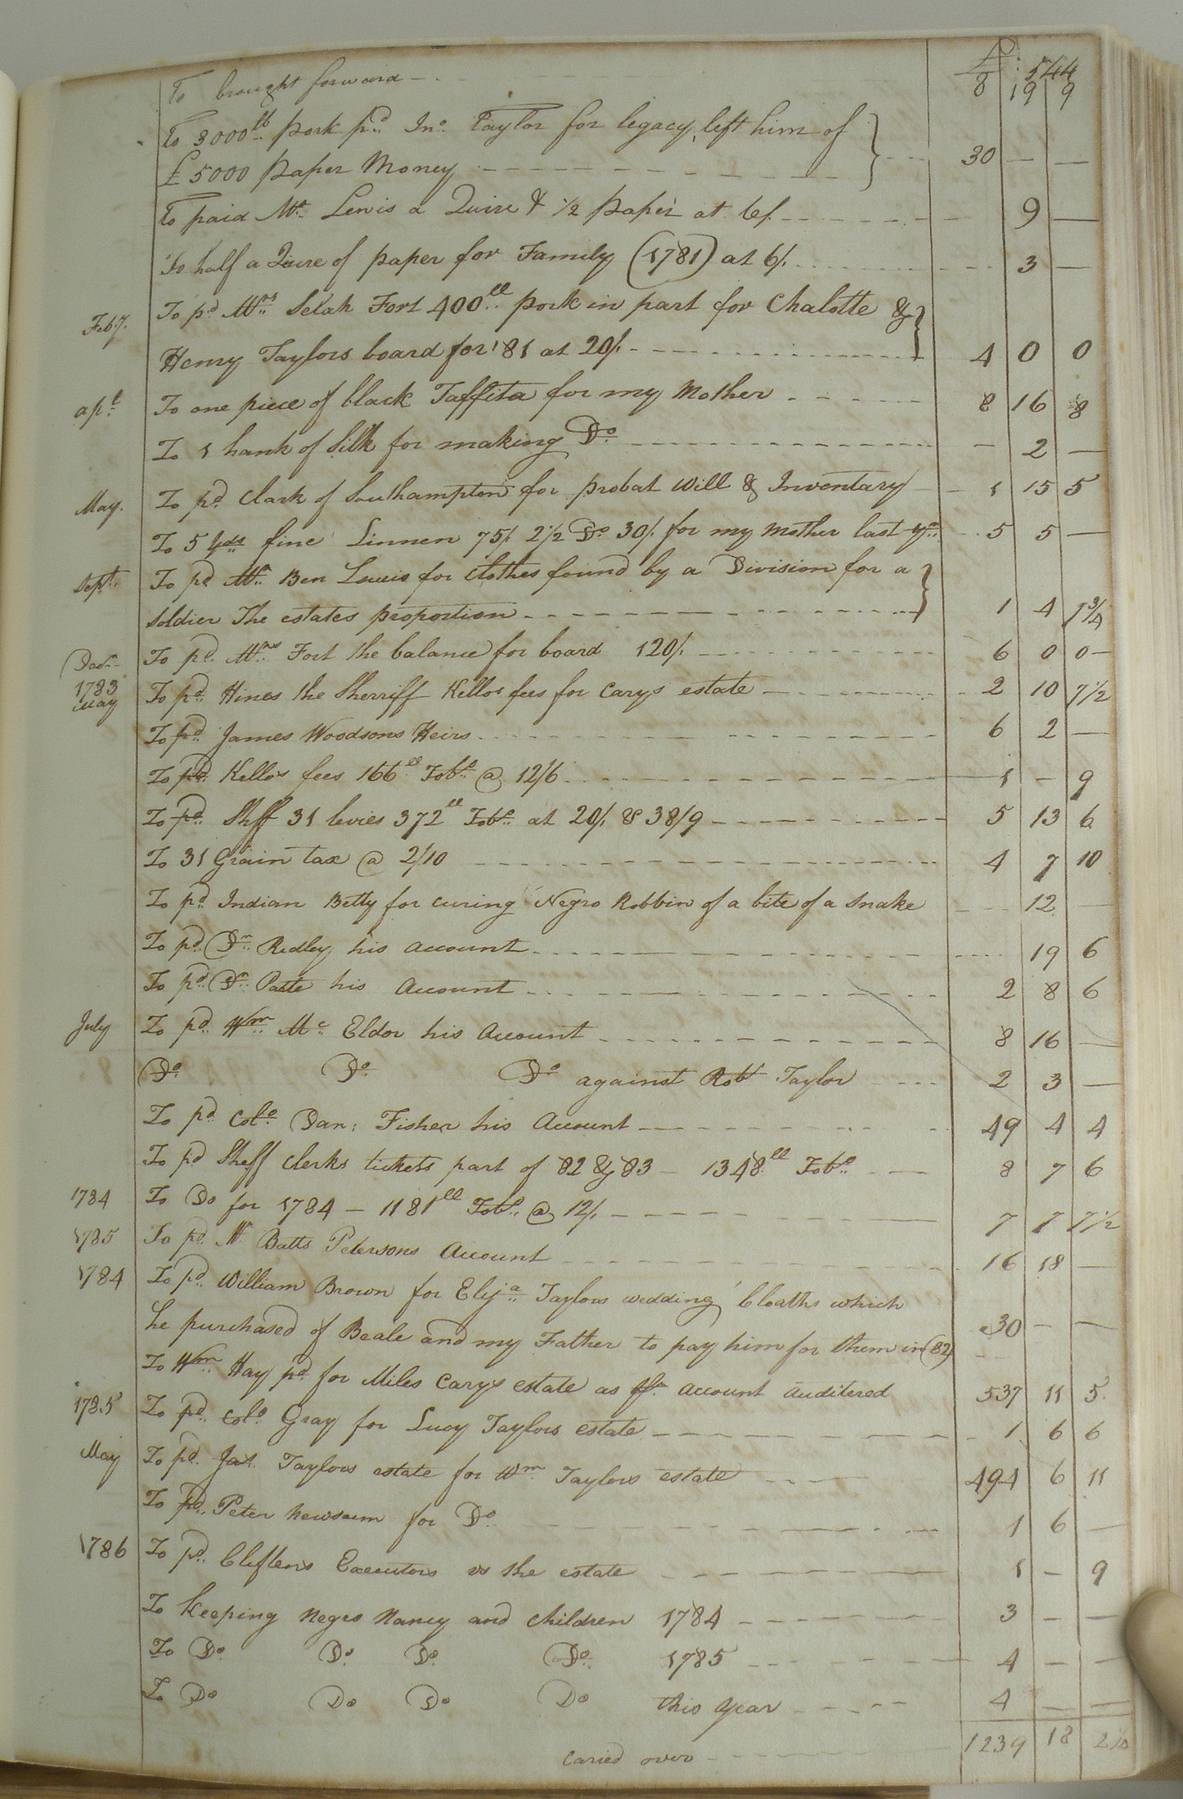 544
£
To brought forward 8 19 9
To 3000lb pork pd. Jno. Taylor for legacy left him of
£5000 paper Money 30 — —
To paid Mr. Lewis a Quire & 1/2 paper at 6/. 9 —
To half a Quire of paper for Family (1781) at 6/. 3 —
Feb.7. To pd Mrs Selah Fort 400ll pork in part for Chalotte &
Henry Taylors board for '81 at 20/. 4 0 0
apl. To one piece of black Taffita for my Mother 8 16 8
To 1 hank of Silk for making Do. 2 —
May. To pd. Clark of Southampton for probat Will & Inventary 1 15 5
To 5 Yds fine Linnen 75/. 2 1/2 Do 30/. for my Mother last yr. 5 5 —
Sept. To pd Mr. Ben Lewis for clothes found by a Division for a
Soldier The estates proportion 1 4 7 3/4
Decr. To pd. Mrs. Fort the balance for board 120/. 6 0 0
1783
May To pd. Hines the Sherriff Kellos fees for Carys estate 2 10 7 1/2
To pd James Woodsons Heirs 6 2 —
To pd. Kellos fees 166ll Tobo @ 12/6 1 — 9
To pd. Shff 31 levies 372ll Tobo. at 20/. & 38/9 5 13 6
To 31 Grain tax @ 2/10 4 7 10
To pd Indian Betty for curing Negro Robbin of a bite of a Snake 12 —
To pd Dr. Ridley his account 19 6
To pd. Dr. Patte his Account 2 8 6
July To pd. Wm. Mc Eldor his Account 8 16 —
Do Do Do against Robt Taylor 2 3 —
To pd Colo. Dan: Fisher his Account 49 4 4
To pd Sheff clerks tickets part of 82 & 83 — 1348ll Tobo. 8 7 6
1784 To Do for 1784 — 1181ll Tobo. @ 12/. 7 7 7 1/2
1785 To pd. Mr Batts Petersons Account 16 18 —
1784 To pd. William Brown for Elija. Taylors wedding Cloaths which
he purchased of Beale and my Father to pay him for them in (82) 30 — —
To Wm. Hay pd for Miles Carys estate as pr. account auditered 537 11 5
1785 To pd. Colo Gray for Lucy Taylors estate 1 6 6
May To pd. Jas. Taylors estate for Wm Taylors estate 494 6 11
To pd. Peter Newsum for Do 1 6 —
1786 To pd. Cliftens Executors vs the estate 1 — 9
To keeping negro Nancy and Children 1784 3 — —
To Do Do Do Do 1785 4 — —
To Do Do Do Do this Year 4 — —
Caried over 1239 18 2 1/2